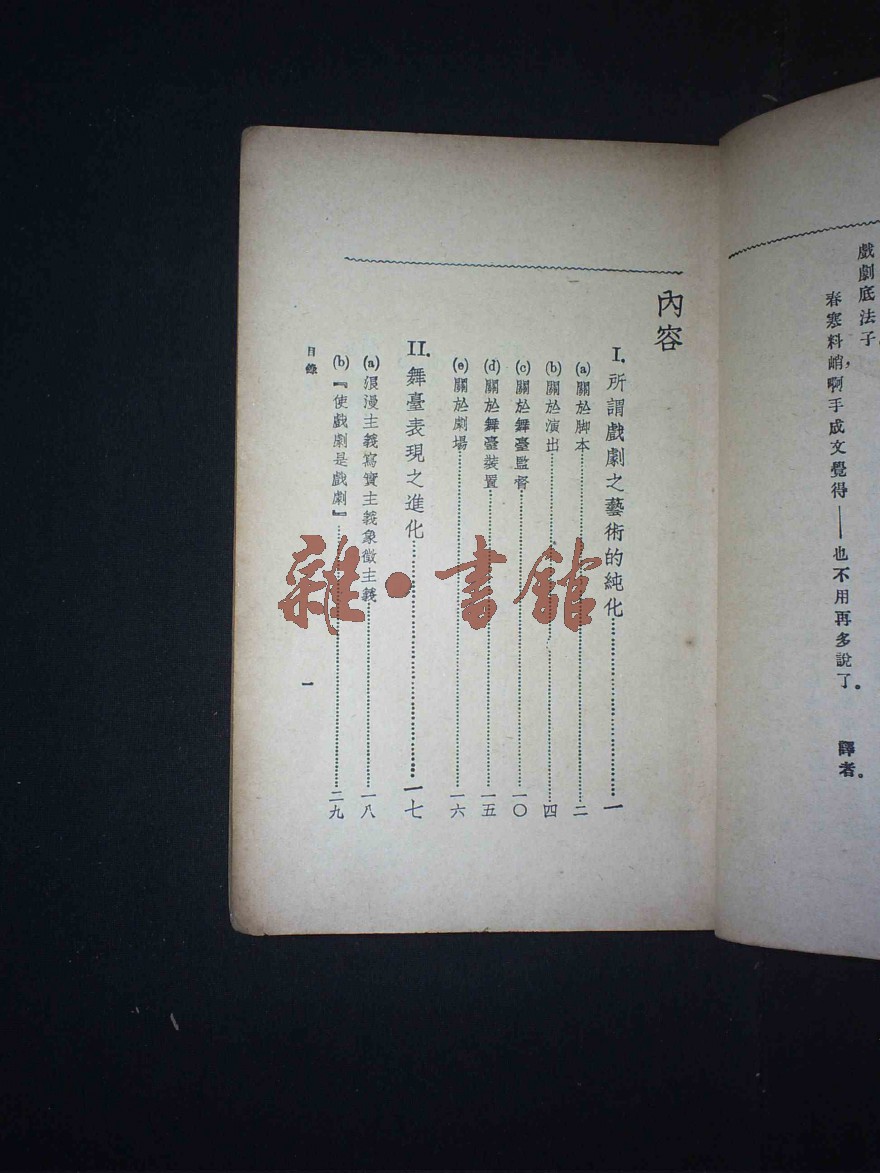 戲劇底法子。
春寒料峭，啊手成文覺得——也不用再多說了。
譯者。
內容
I. 所謂戲劇之藝術的純化……一
(a) 關於脚本……二
(b) 關於演出……四
(c) 關於舞臺監督……一〇
(d) 關於舞臺裝置……一五
(e) 關於劇場……一六
II. 舞臺表現之進化……一七
(a) 浪漫主義寫實主義象徵主義……一八
(b) 『使戲劇是戲劇』……二九
目錄
一
雜·書館